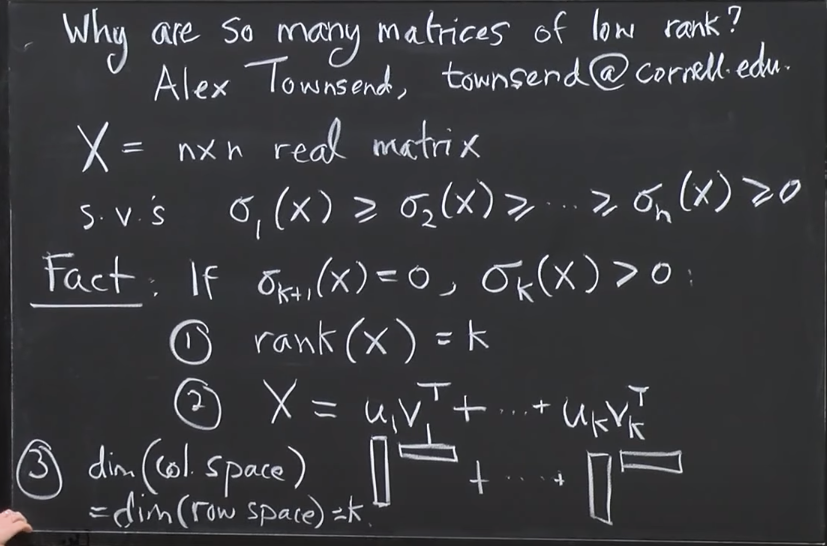 Why are so many matrices of low rank?
Alex Townsend, townsend@cornell.edu.
X = n×n real matrix
s.v.'s σ₁(X) ≥ σ₂(X) ≥ ... ≥ σₙ(X) ≥ 0
Fact: If σₖ₊₁(X) = 0, σₖ(X) > 0:
① rank(X) = k
② X = u₁v₁ᵀ + ... + uₖvₖᵀ
③ dim(col. space)
= dim(row space) = k.
+ ... +